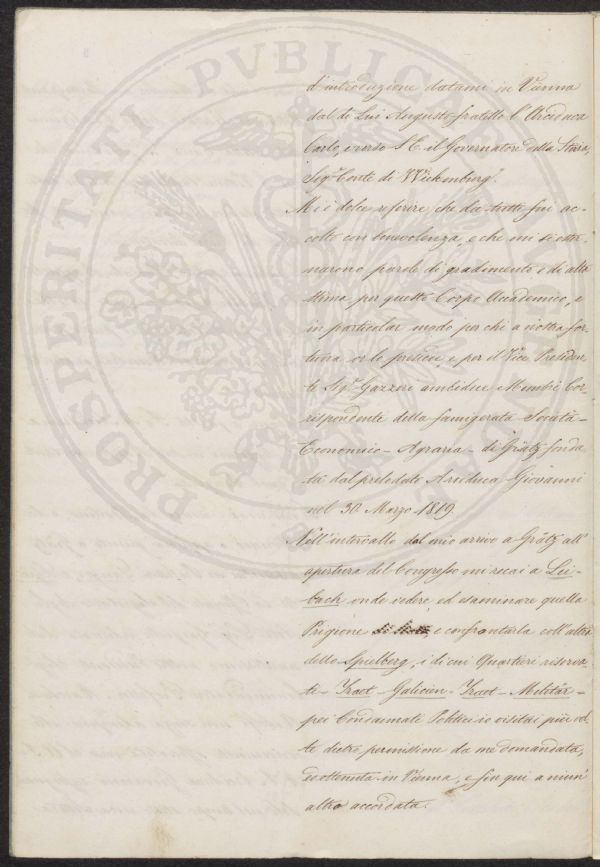 PROSPERITATI PVBLICAE
d'introduzione datami in Vienna
dal di Lui Augusto fratello l'Arciduca
Carlo, e verso S. E. il Governatore della Stiria,
Sig.r Conte di Wickenburg.
Mi è dolce referire, che da tutti fui ac-
colto con benevolenza, e che mi si ester-
narono parole di gradimento e di alta
stima per questo Corpo Accademico, e
in particolar modo per chi a nostra for-
tuna or lo presiede, e per il Vice Presiden-
te Sig.r Gazzeri ambidue Membri Cor-
rispondente della famigerata Società-
Economico-Agraria-di Grätz fonda-
ta dal prelodato Arciduca-Giovanni
nel 30 Marzo 1819.
Nell'intervallo dal mio arrivo a Grätz all'
apertura del Congresso mi recai a Lei-
bach onde vedere, ed esaminare quella
Prigione e confrontarla coll'altra
dello Spielberg, i di cui Quartieri riserva-
ti-Tract-Galicien-Tract-Militär-
pei Condannati Politici io visitai più vol-
te dietro permissione da me domandata,
ed ottenuta in Vienna, e fin qui a niun'
altro accordata.